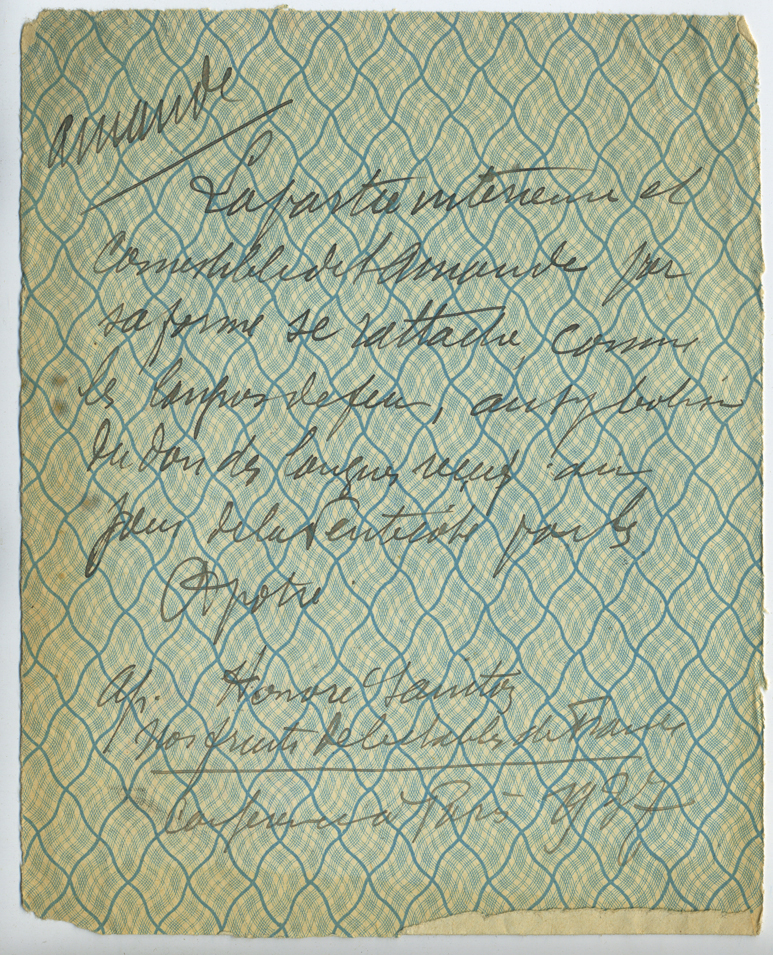 amande
La partie interieure et
comestible de l'amande par
sa forme se rattache, comme
les langues de feu, au symbolisme
du don des langues reçu au
jour de la Pentecôte par les
Apotres
ap. Honoré
Nos fruits delectables de France
Conference à Paris 1937